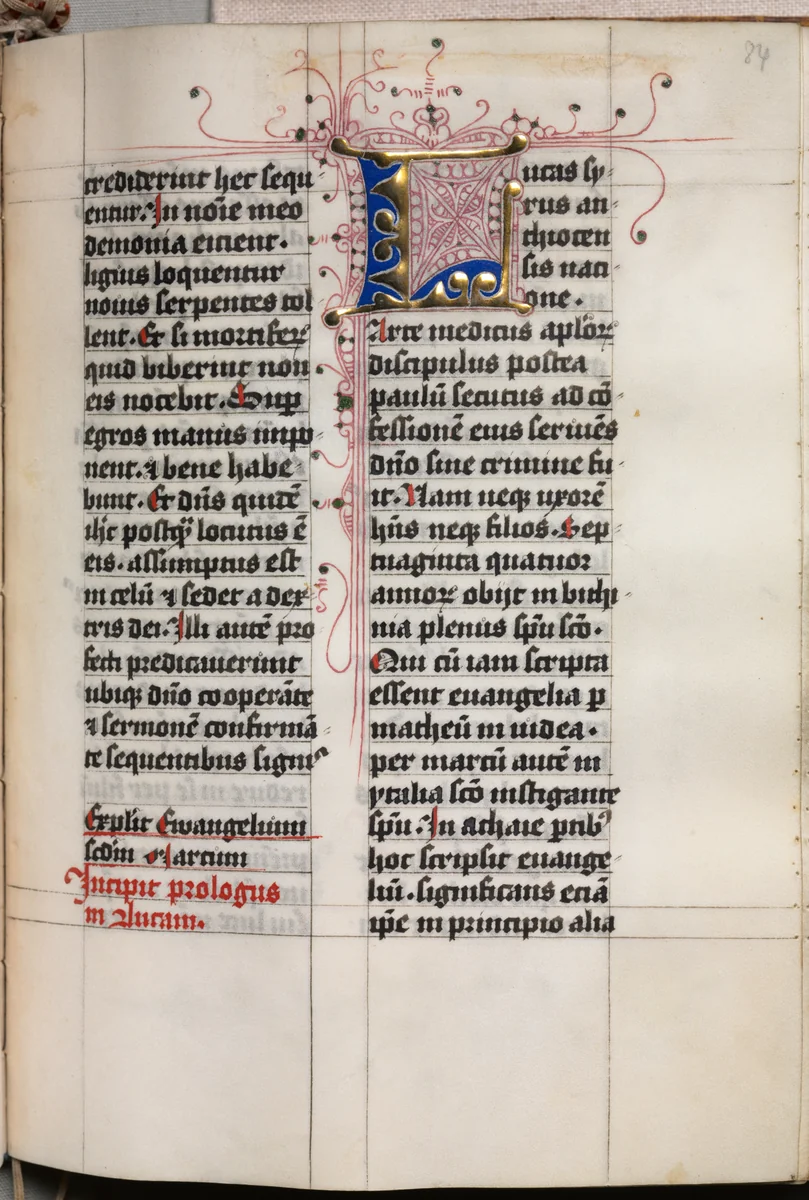 84
crediderint hec sequ
entur. In noīe meo
demonia eicient.
liguis loquentur
nouis serpentes tol
lent. Et si mortiferꝫ
quid biberint non
eis nocebit. Sup̄
egros manus impo
nent. ⁊ bene habe
bunt. Et dn̄s quidē
ih̄c postq̄ȝ locutus ē
eis. assumptus est
in celū ⁊ sedet a dex
tris dei. Illi autē pro
fecti predicauerunt
ubiqꝫ dn̄o cooperāte
⁊ sermonē confirmā
te sequentibus signis
Explic̄ Ewangelium
scdm̄ Marcum
Incipit prologus
in Lucam.
Lucas sy
rus an
thiocen
sis nati
one.
Arte medicus aplōꝝ
discipulus postea
paulū secutus ad cō
fessionē eius seruiēs
dn̄o sine crimine fu
it. Nam neqꝫ uxorē
hn̄s neqꝫ filios. Sep
tuaginta quatuor
annoꝝ obijt in bithi
nia plenus sp̄u scō.
Qui cū iam scripta
essent euangelia p̲
matheū in iudea.
per marcū autē in
ytalia scō instigante
sp̄u. In achaie ptibꝰ
hoc scripsit euange
liū. significans eciā
ip̄e in principio alia